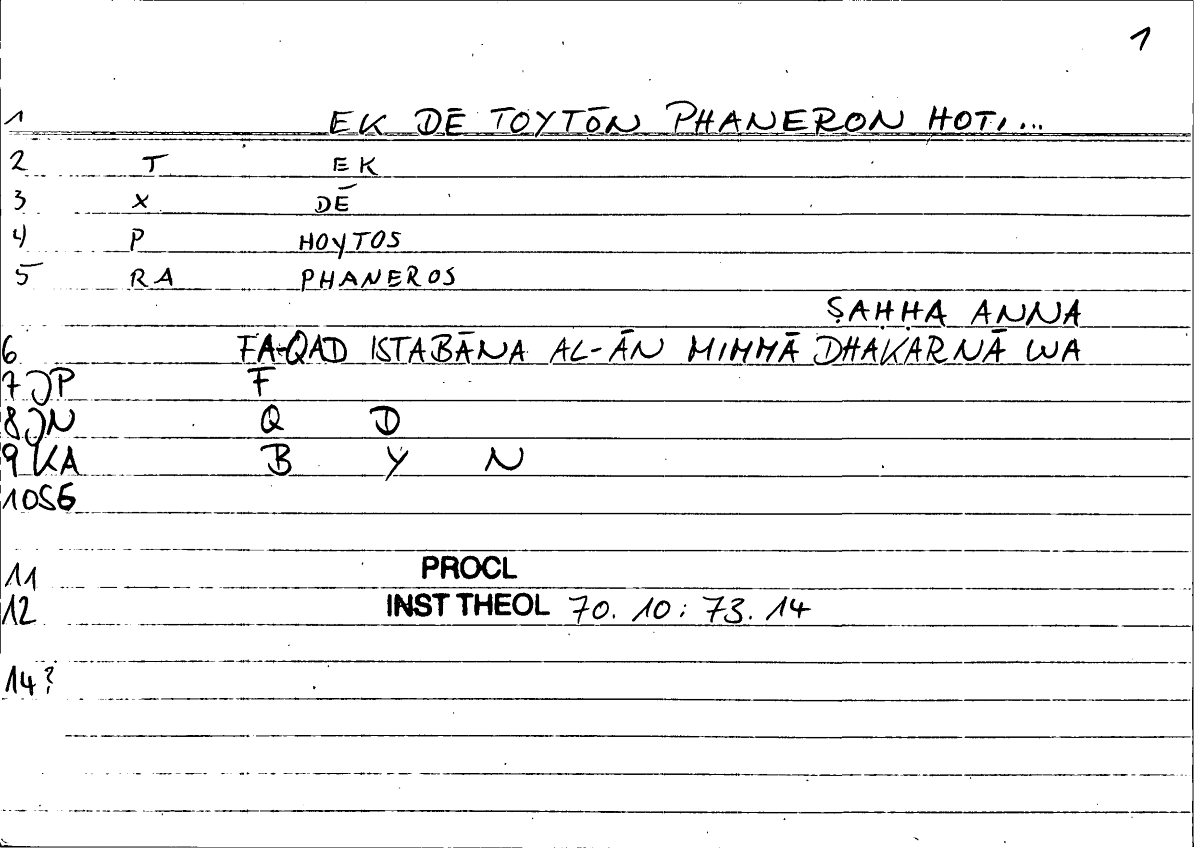 1
1 EK DĒ TOYTŌN PHANERON HOTI...
2 T EK
3 X DĒ
4 P HOYTOS
5 RA PHANEROS
ṢAḤḤA ANNA
6 FA-QAD ISTABĀNA AL-ĀN MIMMĀ DHAKARNĀ WA
7 JP F
8 JN Q D
9 KA B Y N
10 SG
11 PROCL
12 INST THEOL 70. 10 : 73. 14
14?